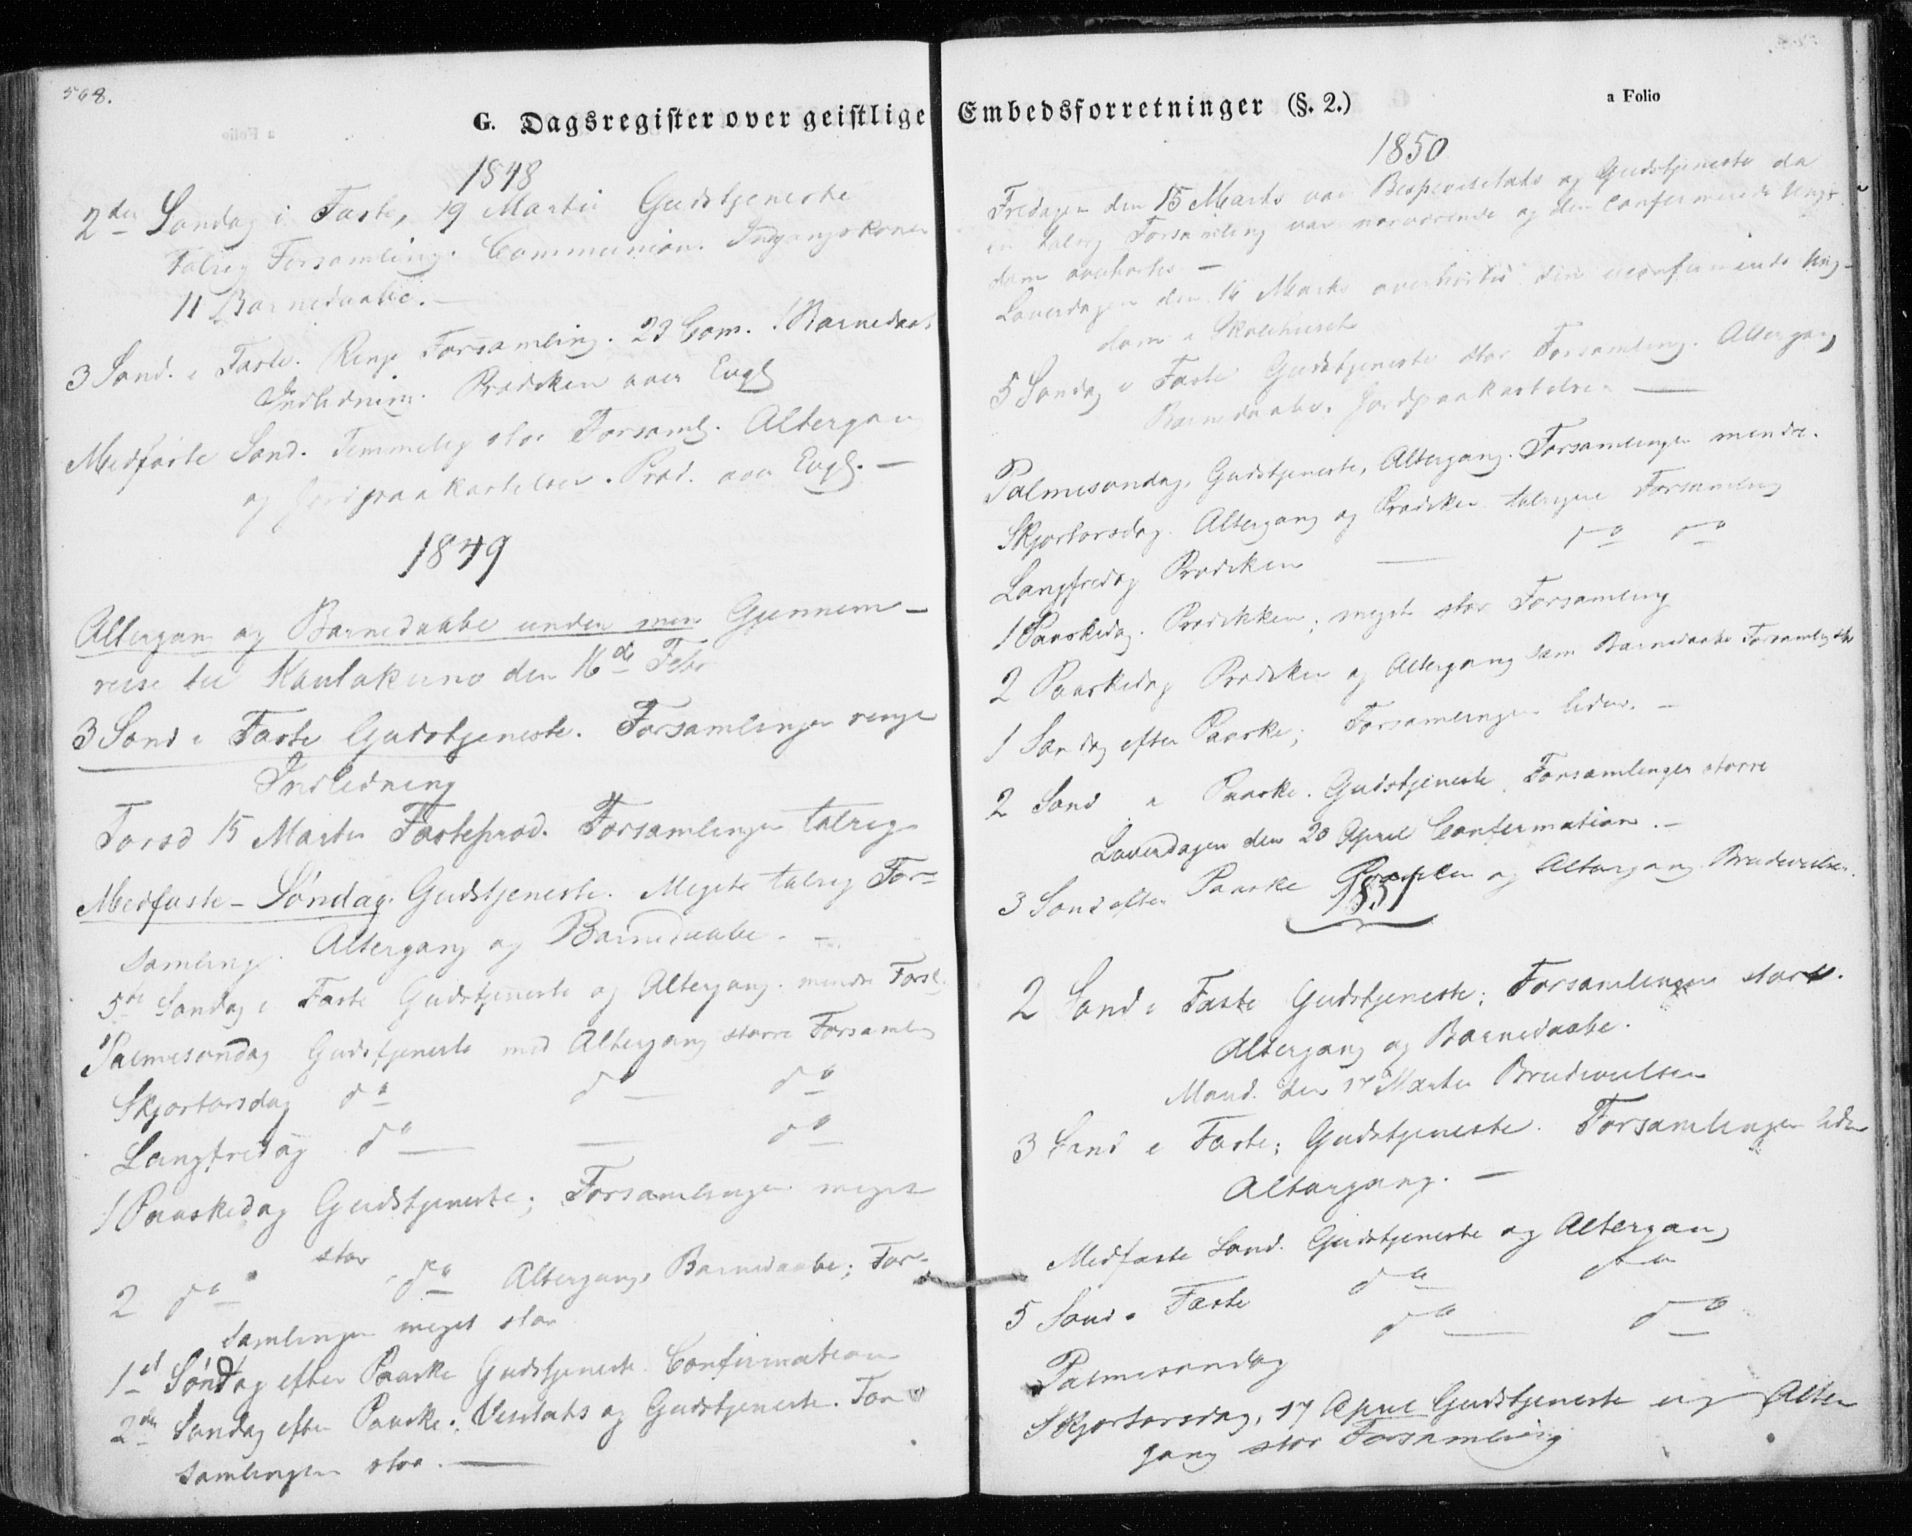 568.
G. Dagsregister over geistlige Embedsforretninger (§. 2.)
a Folio
1848
2den Søndag i Faste, 19 Martii Gudstjeneste
talrig Forsamling. Communion. Indgangskoner
11 Barnedaabe. —
3 Sønd. i Faste. Ringe Forsamling. 23 Com. 1 Barnedaab
Indledning. Prædiken over Evgl
Midfaste Sønd. Temmelig stor Forsaml. Altergan
og Jordpaakastelser. Præd. over Evgl. —
1849
Altergan og Barnedaabe under min Gjennem-
reise til Kautokeino den 16de Febr
3 Sønd i Faste Gudstjeneste. Forsamlingen ringe
Indledning
Torsd 15 Martii Fastepræd. Forsamlingen talrig
Medfaste-Søndag. Gudstjeneste. Meget talrig For-
samling. Altergang og Barnedaabe. —
5te Søndag i Faste Gudstjeneste og Altergang. mindre Forsl.
Palmesøndag Gudstjeneste med Altergang større Forsamling
Skjertorsdag do do do
Langfredag do — do
1 Paaskedag Gudstjeneste; Forsamlingen meget
stor
2 do do Altergang, Barnedaabe; For-
samlingen meget stor
1st Søndag efter Paaske Gudstjeneste. Confirmation
2den Søndag efter Paaske. Visitats og Gudstjeneste. For
samlingen stor. —
1850
Fredagen den 15 Marts var Bispevisitats og Gudstjeneste da
en talrig Forsamling var nærværende og den confirmerede Ung-
dom overhørtes —
Løverdagen den 16 Marts overhørtes den uconfirmerede Ung-
dom i Skolehuset
5 Søndag i Faste Gudstjeneste stor Forsamling. Altergang,
Barnedaabe. Jordpaakastelse. —
Palmesøndag, Gudstjeneste, Altergang. Forsamlingen mindre.
Skjertorsdag. Altergang og Prædiken talrigere Forsamling
Langfredag Prædiken — do do
1 Paaskedag. Prædikken; meget stor Forsamling
2 Paaskedag Prædiken og Altergang sam Barnedaabe Forsamlig
1 Søndag efter Paaske; Forsamlingen liden. —
2 Sønd e Paaske. Gudstjeneste. Forsamlingen større
Løverdagen den 20 April Confirmation. —
3 Sønd efter Paaske Prædiken og Altergang. Brudevielse.
1851
2 Sønd i Faste Gudstjeneste; Forsamlingen stor.
Altergang og Barnedaabe.
Mand. den 17 Martii Brudevielser
3 Sønd i Faste; Gudstjeneste. Forsamlingen liden
Altergang. —
Medfaste Sønd. Gudstjeneste og Altergang
5 Sønd i Faste do do
Palmesøndag do — do
Skjertorsdag, 17 April Gudstjeneste og Alter
gang stor Forsamling